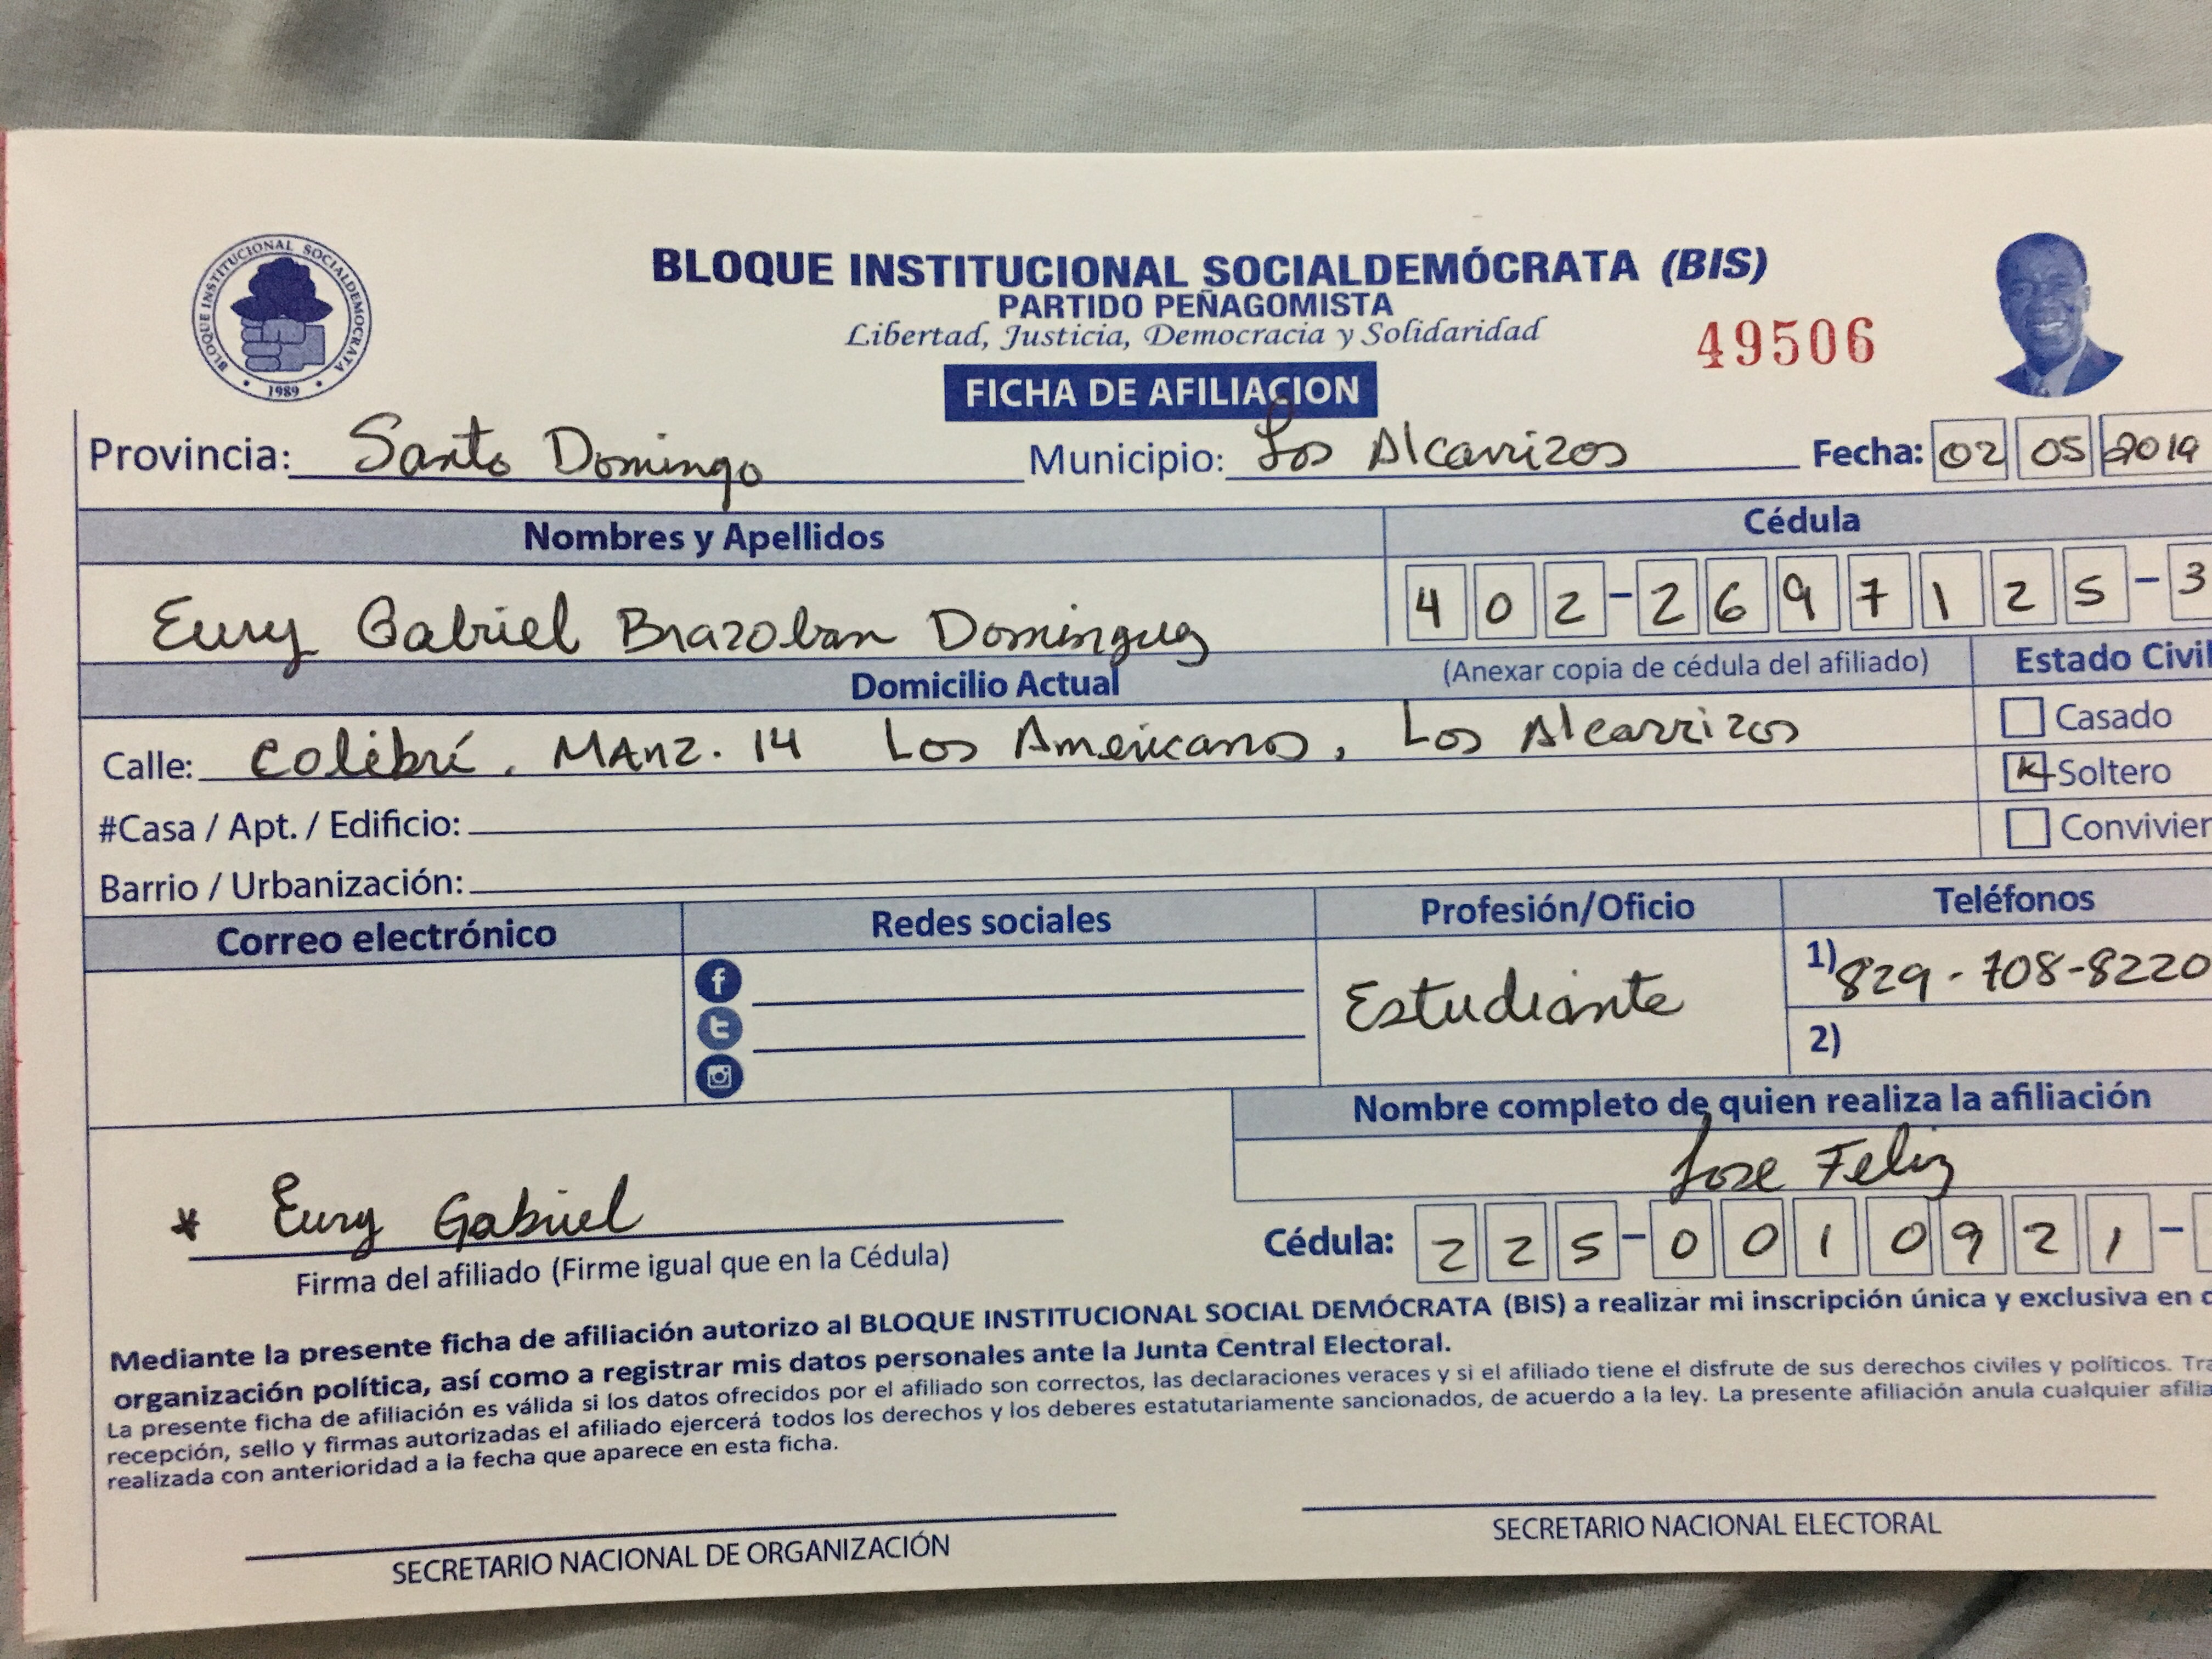 BLOQUE INSTITUCIONAL SOCIALDEMOCRATA
1989
BLOQUE INSTITUCIONAL SOCIALDEMÓCRATA (BIS)
PARTIDO PEÑAGOMISTA
Libertad, Justicia, Democracia y Solidaridad
49506
FICHA DE AFILIACION
Provincia: Santo Domingo Municipio: Los Alcarrizos Fecha: 02 05 2019
Nombres y Apellidos Cédula
Eury Gabriel Brazoban Dominguez 402-2697125-3
Domicilio Actual (Anexar copia de cédula del afiliado) Estado Civil
Calle: Colibrí, Manz. 14 Los Americanos, Los Alcarrizos
Casado
Soltero
#Casa / Apt. / Edificio:
Convivien
Barrio / Urbanización:
Correo electrónico Redes sociales Profesión/Oficio Teléfonos
Estudiante
1) 829-708-8220
2)
Nombre completo de quien realiza la afiliación
Jose Feliz
* Eury Gabriel
Cédula: 225-0010921-
Firma del afiliado (Firme igual que en la Cédula)
Mediante la presente ficha de afiliación autorizo al BLOQUE INSTITUCIONAL SOCIAL DEMÓCRATA (BIS) a realizar mi inscripción única y exclusiva en
organización política, así como a registrar mis datos personales ante la Junta Central Electoral.
La presente ficha de afiliación es válida si los datos ofrecidos por el afiliado son correctos, las declaraciones veraces y si el afiliado tiene el disfrute de sus derechos civiles y políticos. Tra
recepción, sello y firmas autorizadas el afiliado ejercerá todos los derechos y los deberes estatutariamente sancionados, de acuerdo a la ley. La presente afiliación anula cualquier afilia
realizada con anterioridad a la fecha que aparece en esta ficha.
SECRETARIO NACIONAL DE ORGANIZACIÓN
SECRETARIO NACIONAL ELECTORAL